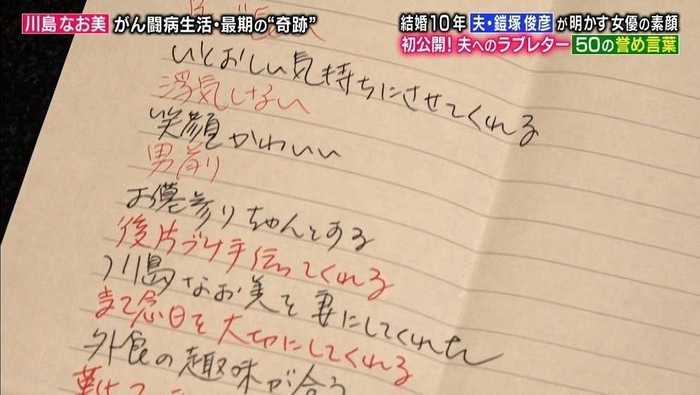 川島なお美 がん闘病生活・最期の“奇跡”
結婚10年 夫・鎧塚俊彦が明かす女優の素顔
初公開！夫へのラブレター 50の誉め言葉
いとおしい気持ちにさせてくれる
浮気しない
笑顔かわいい
男前り
お墓参りちゃんとする
後片づけ手伝ってくれる
川島なお美を妻にしてくれた
念日を大切にしてくれる
外食の趣味が合う